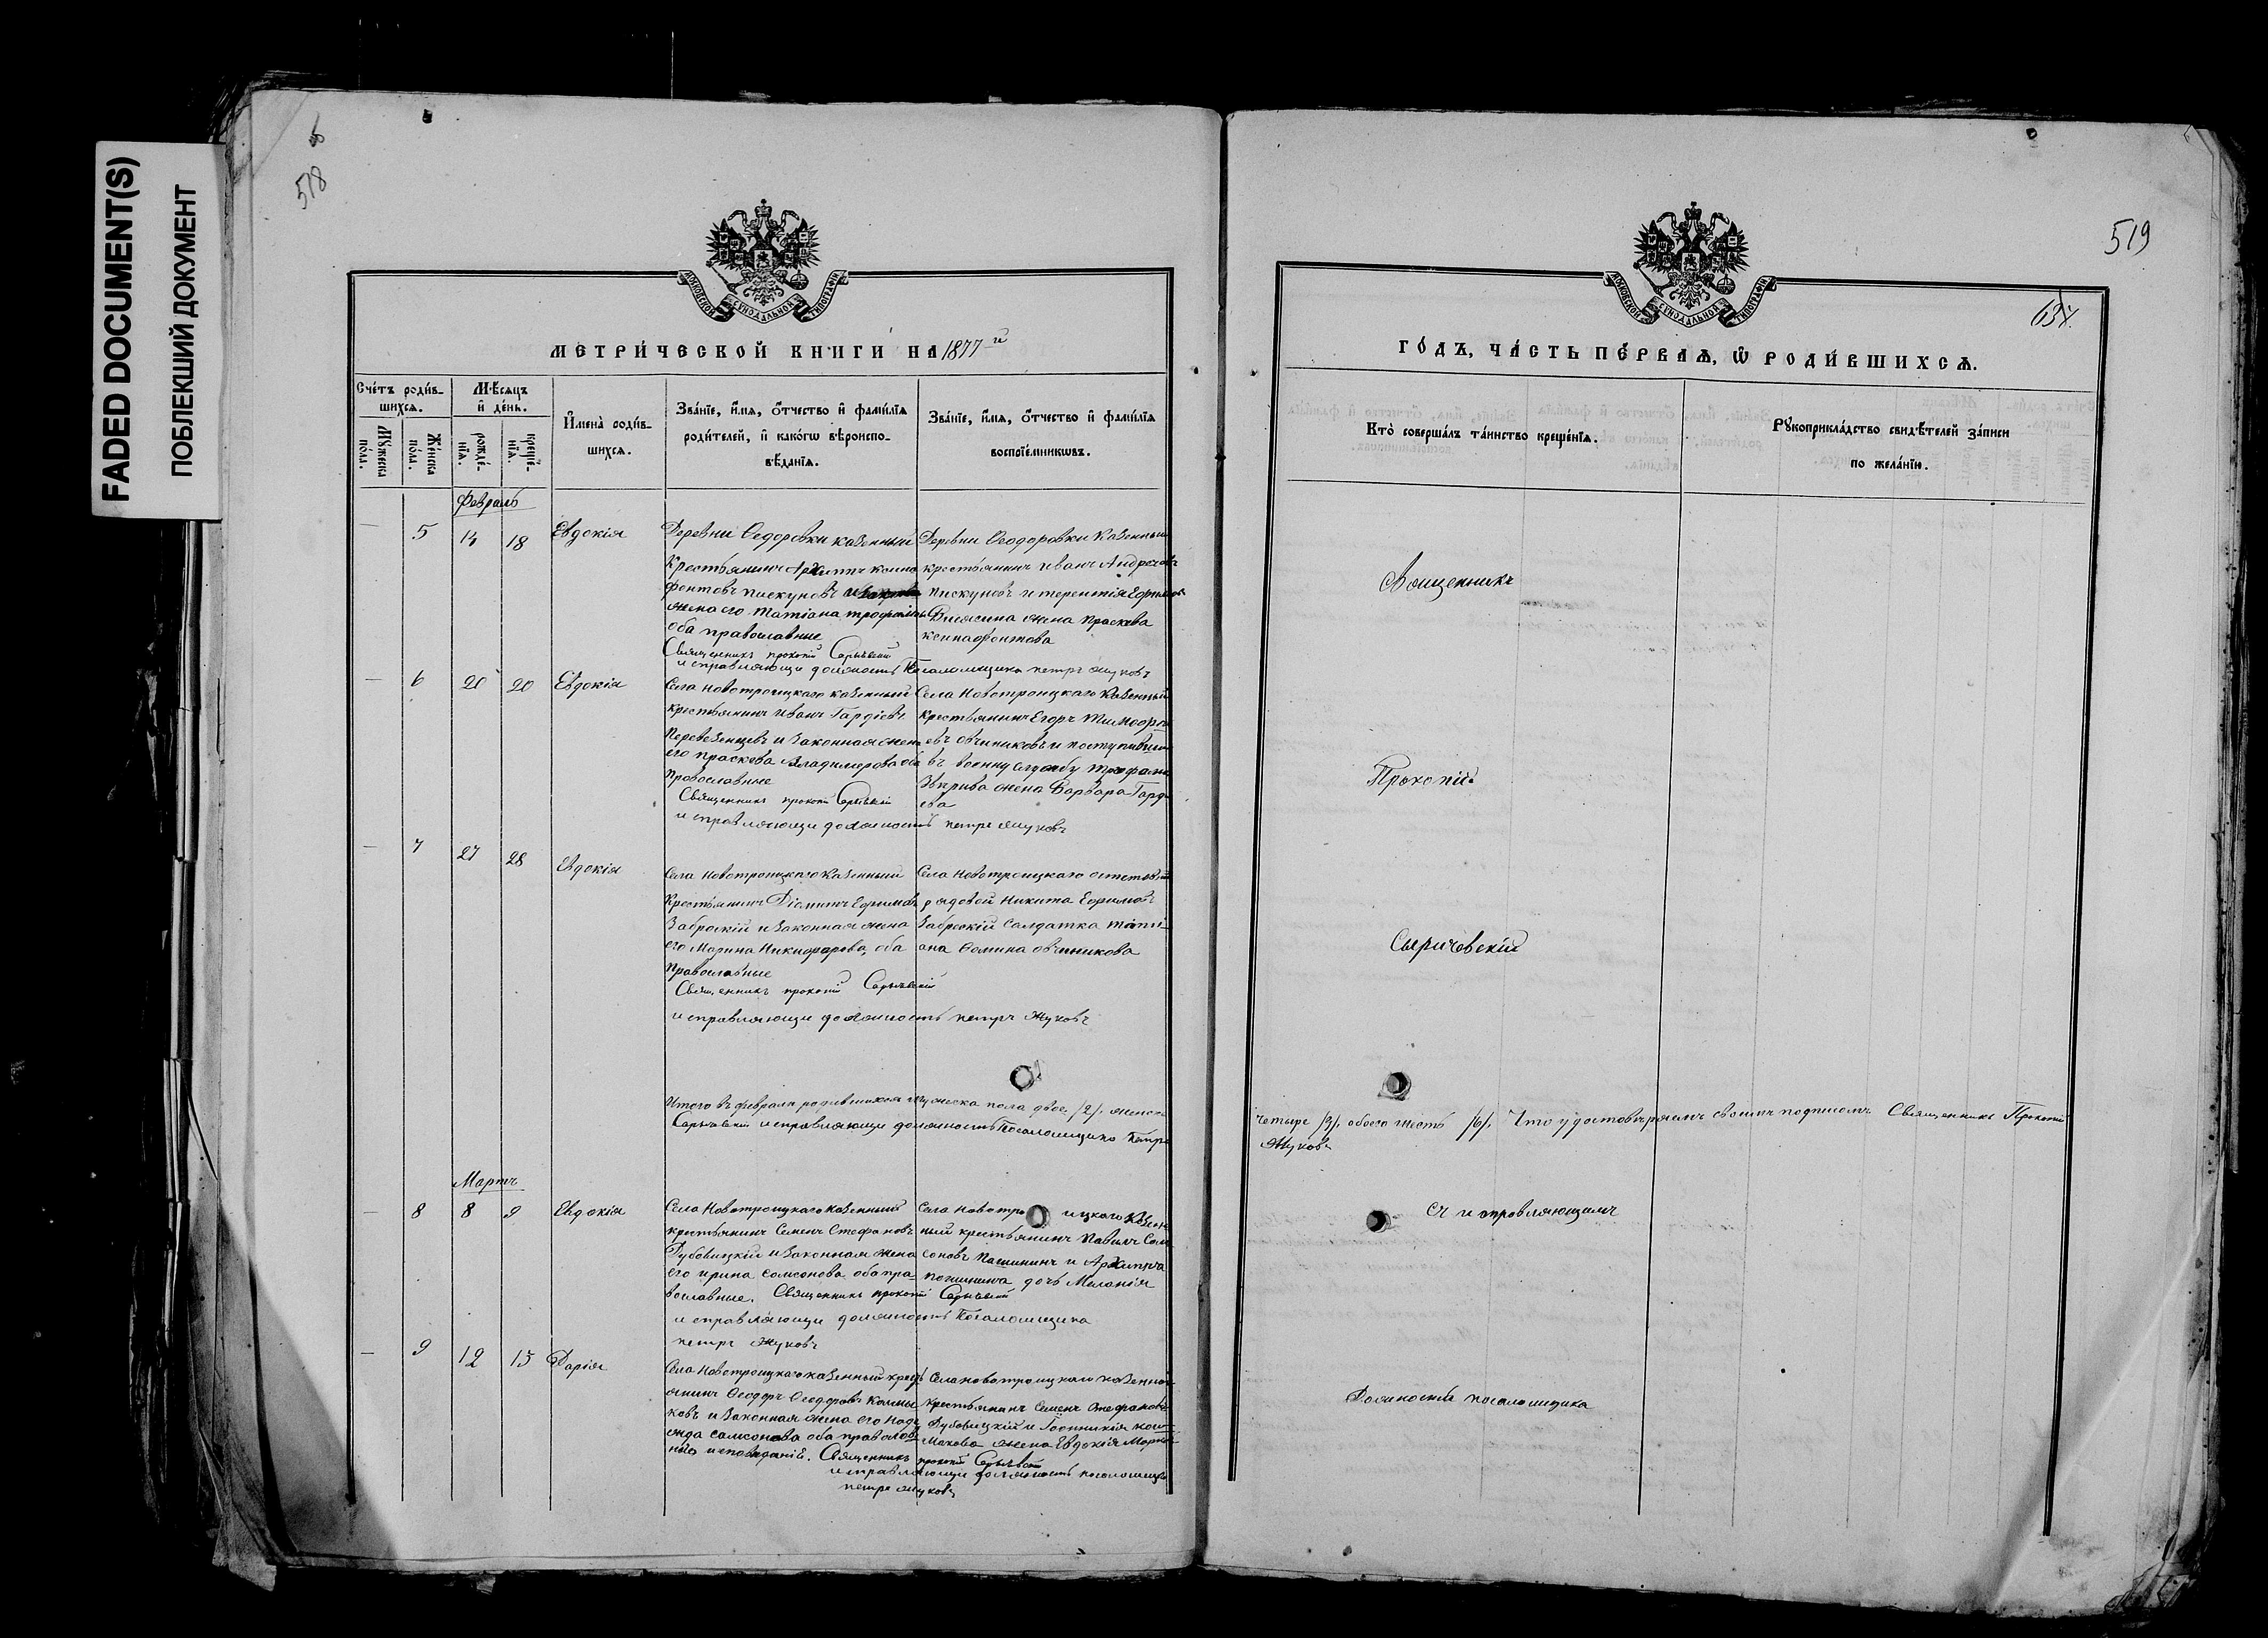 FADED DOCUMENT(S)
ПОБЛЕКШИЙ ДОКУМЕНТ
518
МОСКОВСКОЙ СѴНОДАЛЬНОЙ ТИПОГРАФІИ
МЕТРИ́ЧЕСКОЙ КНИГИ НА 1877 й
Сче́тъ роди́в-
шихсѧ.
Мѣ́сѧцъ
и҆ де́нь.
И҆мена̀ роди́в-
шихсѧ.
Зва́нїе, и҆́мѧ, ѻ҆́тчество и҆ фами́лїѧ
роди́телей, и҆ како́гѡ вѣроиспо-
вѣ́данїѧ.
Зва́нїе, и҆́мѧ, ѻ҆́тчество и҆ фами́лїѧ
воспрїе́мникѡвъ.
Мꙋ́жеска
по́ла.
Же́нска
по́ла.
рожде́-
нїѧ.
креще́-
нїѧ.
Февраль
— 5 14 18 Евдокія
Деревни Ѳедоровки казенный
крестьянинъ Архипъ ксено
фонтовъ пискуновъ
жена его Татіана трофимова
оба православные
Священникъ прокопій Сарычевскій
исправляющи должность Псаломщика петръ жуковъ
Деревни Ѳеодоровки Казенный
крестьянинъ иванъ Андреевъ
пискуновъ и терентія Ефимова
жена праскева
ксинафонтова
— 6 20 20 Евдокія
Села новотроицкаго казенный
крестьянинъ иванъ Гордіевъ
Перевезенцевъ и законная жена
его праскева Владимерова оба
православные
Священникъ прокопій Сарычевскій
исправляющи должность петръ жуковъ
Села Новотроицкаго Казенный
крестьянинъ Егоръ Тимоѳе
евъ овчиниковъ и поступивши
въ военну службу трофима
жена Варвара Горди
ева
— 7 27 28 Евдокія
Села новотроицкаго казенный
крестьянинъ Діомитъ Ефимовъ
Забрскій и законная жена
его Марина Никифорова, оба
православные
Священникъ прокопій Сарычевскій
исправляющи должность петръ жуковъ
Села новотроицкаго
рядовой никита Ефимовъ
Забрскій салдатка тати-
ана Ѳомина овчинникова
Итого въ февралѣ родившихся мужеска пола двое /2/. женска
Сарычевскій исправляющи должность Псаломщика Петръ
Мартъ
— 8 8 9 Евдокія
Села Новотроицкаго казенный
крестьянинъ Семенъ Стефановъ
Дубовицкій и законная жена
его ирина самсонова оба пра-
вославные. Священникъ прокопій Сарычевскій
исправляющи должность Псаломщика
петръ жуковъ
Села новотроицкаго Казен
ный крестьянинъ Павилъ Сам
соновъ Пашининъ и Архиппа
пашинина дочь Меланія
— 9 12 13 Дарія
Села новотроицкаго казенный крест
янинъ Ѳеодоръ Ѳеодоровъ
ковъ и законная жена его наде
жда самсонова оба православ
наго исповеданій. Священникъ прокопій Сарычевскій
исправляющи должность псаломщика
петръ жуковъ
Села новотроицкаго казенной
крестьянинъ Семенъ Стефановъ
Дубовицкій и
жена Евдокія
519
634.
МОСКОВСКОЙ СѴНОДАЛЬНОЙ ТИПОГРАФІИ
ГО́ДЪ, ЧА́СТЬ ПЕ́РВАѦ, Ѡ҆ РОДИ́ВШИХСѦ.
Кто̀ соверша́лъ та́инство креще́нїѧ.
Рꙋкоприкла́дство свидѣ́телей за́писи
по жела́нїю.
Священникъ
Прокопій
Сыричевскій
четыре /4/. обоего шесть /6/. Что удостовѣряемъ своимъ подписомъ Священникъ Прокопій
Жуковъ
Съ исправляющимъ
Должность псаломщика